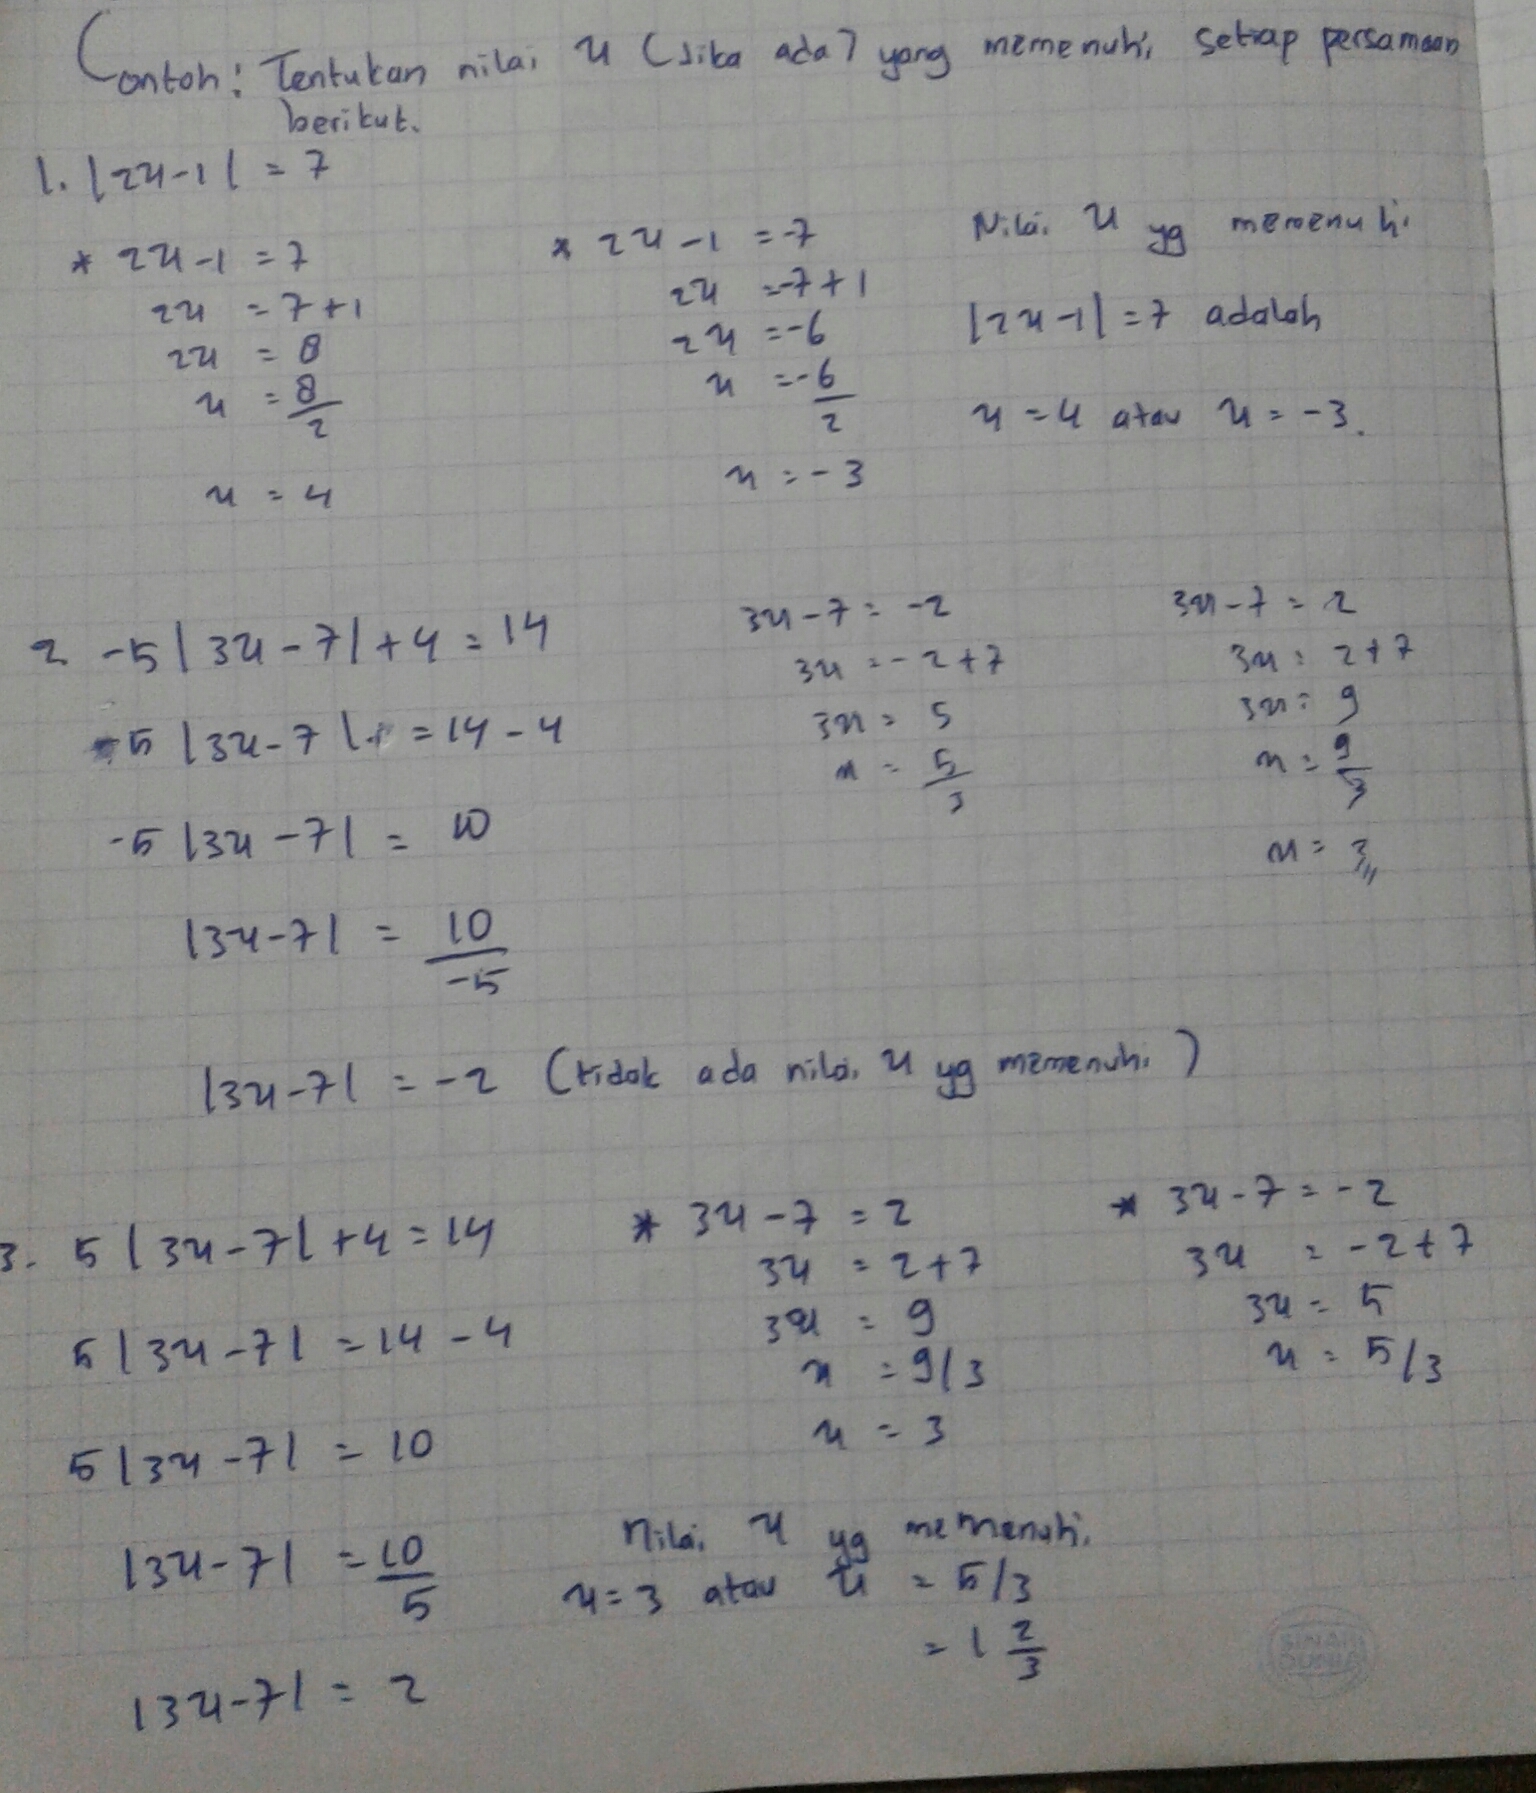 Contoh: Tentukan nilai x (Jika ada) yang memenuhi setiap persamaan
berikut.
1. |2x-1| = 7
* 2x-1 = 7
2x = 7+1
2x = 8
x = 8/2
x = 4
* 2x-1 = -7
2x = -7+1
2x = -6
x = -6/2
x = -3
Nilai x yg memenuhi
|2x-1| = 7 adalah
x = 4 atau x = -3.
2 -5|3x-7|+4 = 14
-5|3x-7| = 14-4
-5|3x-7| = 10
|3x-7| = 10/-5
|3x-7| = -2 (tidak ada nilai x yg memenuhi)
3x-7 = -2
3x = -2+7
3x = 5
x = 5/3
3x-7 = 2
3x = 2+7
3x = 9
x = 9/3
x = 3
3. 5|3x-7|+4 = 14
5|3x-7| = 14-4
5|3x-7| = 10
|3x-7| = 10/5
|3x-7| = 2
* 3x-7 = 2
3x = 2+7
3x = 9
x = 9/3
x = 3
* 3x-7 = -2
3x = -2+7
3x = 5
x = 5/3
Nilai x yg memenuhi
x = 3 atau x = 5/3
= 1 2/3
SINAR
DUNIA